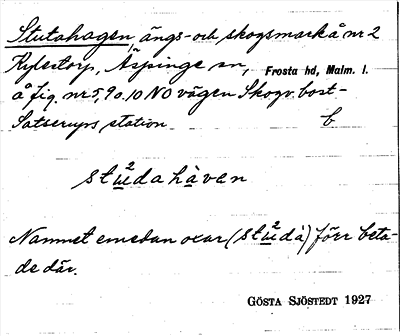 Stutahagen, ängs- och skogsmark å nr 2
Kylestorp, Äspinge sn, Frosta hd, Malm. l.
å fig. nr 5, 9 o. 10 NO vägen Skogv. bost-
Satserups station b
2
stụdahàven
Namnet emedan oxar (stụ²dà) förr beta-
de där.
GÖSTA SJÖSTEDT 1927